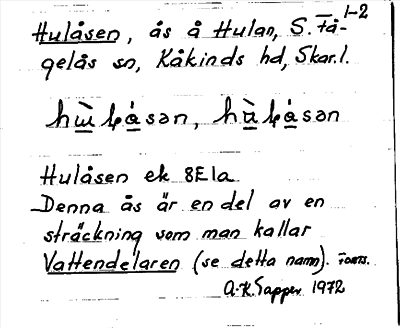 1-2
Hulåsen, ås å Hulan, S. Få-
gelås sn, Kåkinds hd, Skar.l.
Hulåsen ek 8E1a
Denna ås är en del av en
sträckning som man kallar
Vattendelaren (se detta namn). Forts.
A.K. Sapper 1972